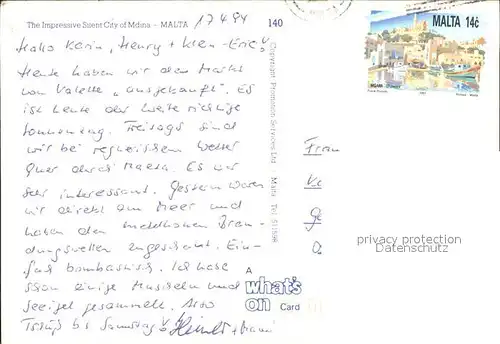 The Impressive Silent City of Mdina – MALTA 17 4 94
140
MALTA 14c
Hallo Karin, Henry + Klein-Eric!
Heute haben wir den Markt
von Valetta "ausgekauft". Es
ist heute der erste richtige
Sonnentag. Freitags sind
wir bei regnerischem Wetter
quer durch Malta. Es war
sehr interessant. Gestern waren
wir direkt am Meer und
haben den Bran-
dungswellen zugeschaut. Ein-
fach bombastisch. Ich habe
schon einige Muscheln und
Seeigel gesammelt. Also
Tschüß bis Samstag
Copyright: Promotion Services Ltd. Malta Tel: 511598
Frau
privacy protection
Datenschutz
A
what's
on Card